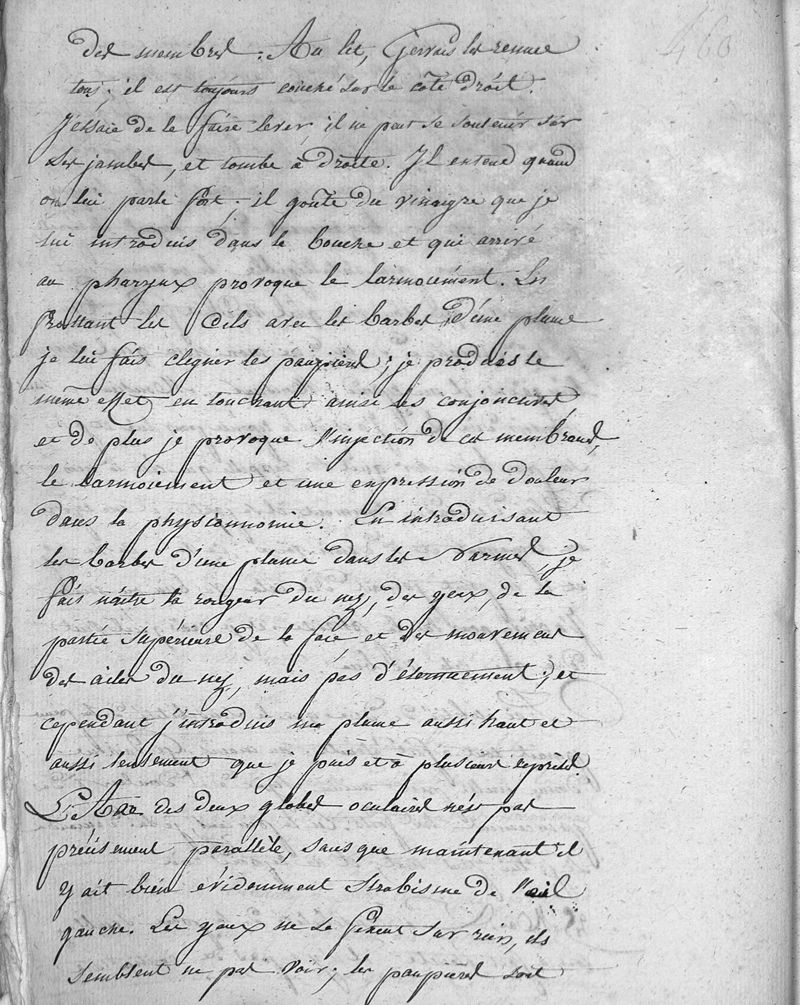 460
des membres. Au lit, Gervais les remue
tous. il est toujours couché sur le coté droit.
J'essaie de le faire lever, il ne peut se soutenir sur
ses jambes, et tombe à droite. Il entend quand
on lui parle fort; il goûte du vinaigre que je
lui introduis dans la bouche et qui arrivé
au pharynx provoque le larmoiement. En
frottant les Cils avec les barbes d'une plume
je lui fais cligner les paupières; je produis le
même effet en touchant ainsi les conjonctives
et de plus je provoque l'injection de ces membranes,
le larmoiement et une expression de douleur
dans la physionnomie. En introduisant
les barbes d'une plume dans les narines, je
fais naître la rougeur du nez, des yeux, de la
partie supérieure de la face et des mouvemens
des ailes du nez, mais pas d'éternuement; et
cependant j'introduis ma plume aussi haut et
aussi lentement que je puis et à plusieurs reprises.
L'Axe des deux globes oculaires n'est pas
précisement parallèle, sans que maintenant il
y ait bien évidemment strabisme de l'œil
gauche. Les yeux ne se fixent sur rien, ils
semblent ne pas voir; les paupières sont